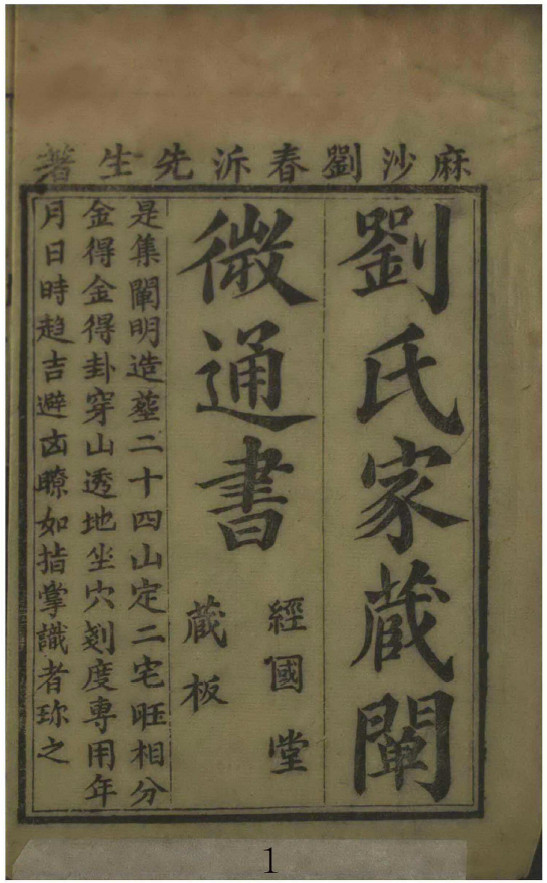 麻沙劉春泝先生著
劉氏家蔵闡
微通書
經國堂
蔵板
是集闡明造塟二十四山定二宅旺相分
金得金得卦穿山透地坐穴剡度專用年
月日時趋吉避凶瞭如指掌識者珎之
1